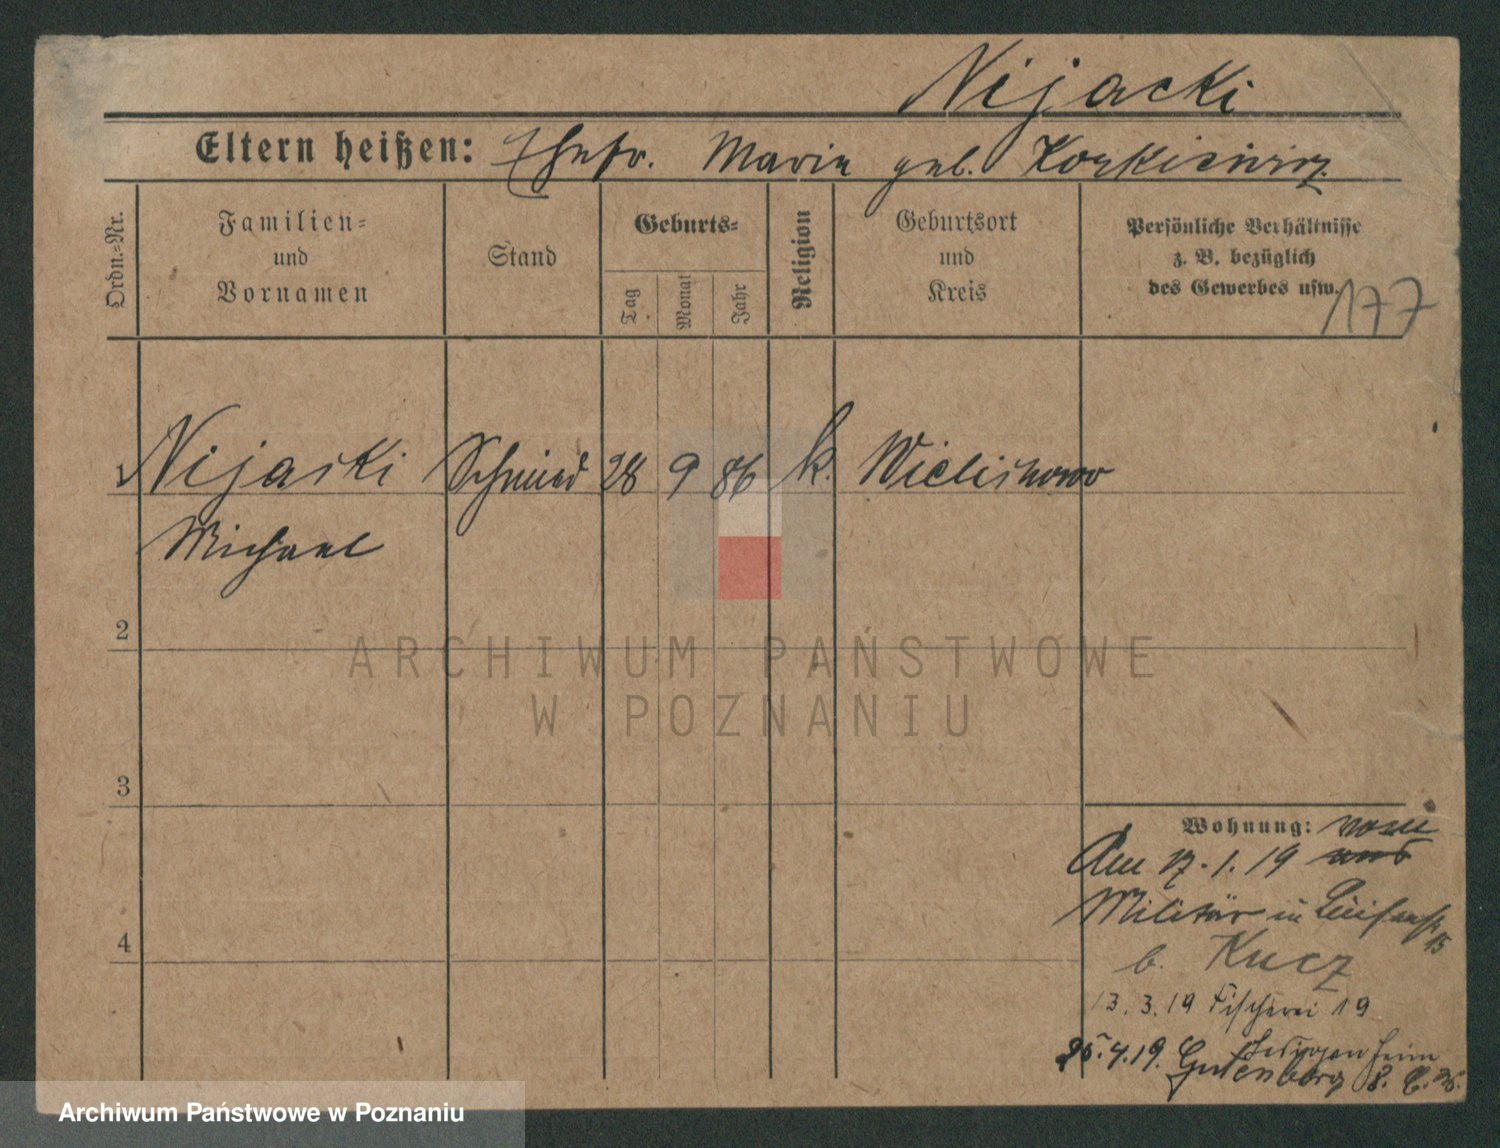 Nijacki
Eltern heißen: Ehefr. Maria geb.
Ordn.=Nr.
Familien=
und
Vornamen
Stand
Geburts=
Tag
Monat
Jahr
Religion
Geburtsort
und
Kreis
Persönliche Verhältnisse
z. B. bezüglich
des Gewerbes usw.
177
Nijacki Schmied 28 9 86 k. Wielichowo
Michael
2
ARCHIWUM PAŃSTWOWE
W POZNANIU
3
Wohnung: vom
Am 17.1.19
Militär in Luisenstr
15
4
b. Kucz
13.3.19 Fischerei 19
25.4.19. Gutenberg
Archiwum Państwowe w Poznaniu